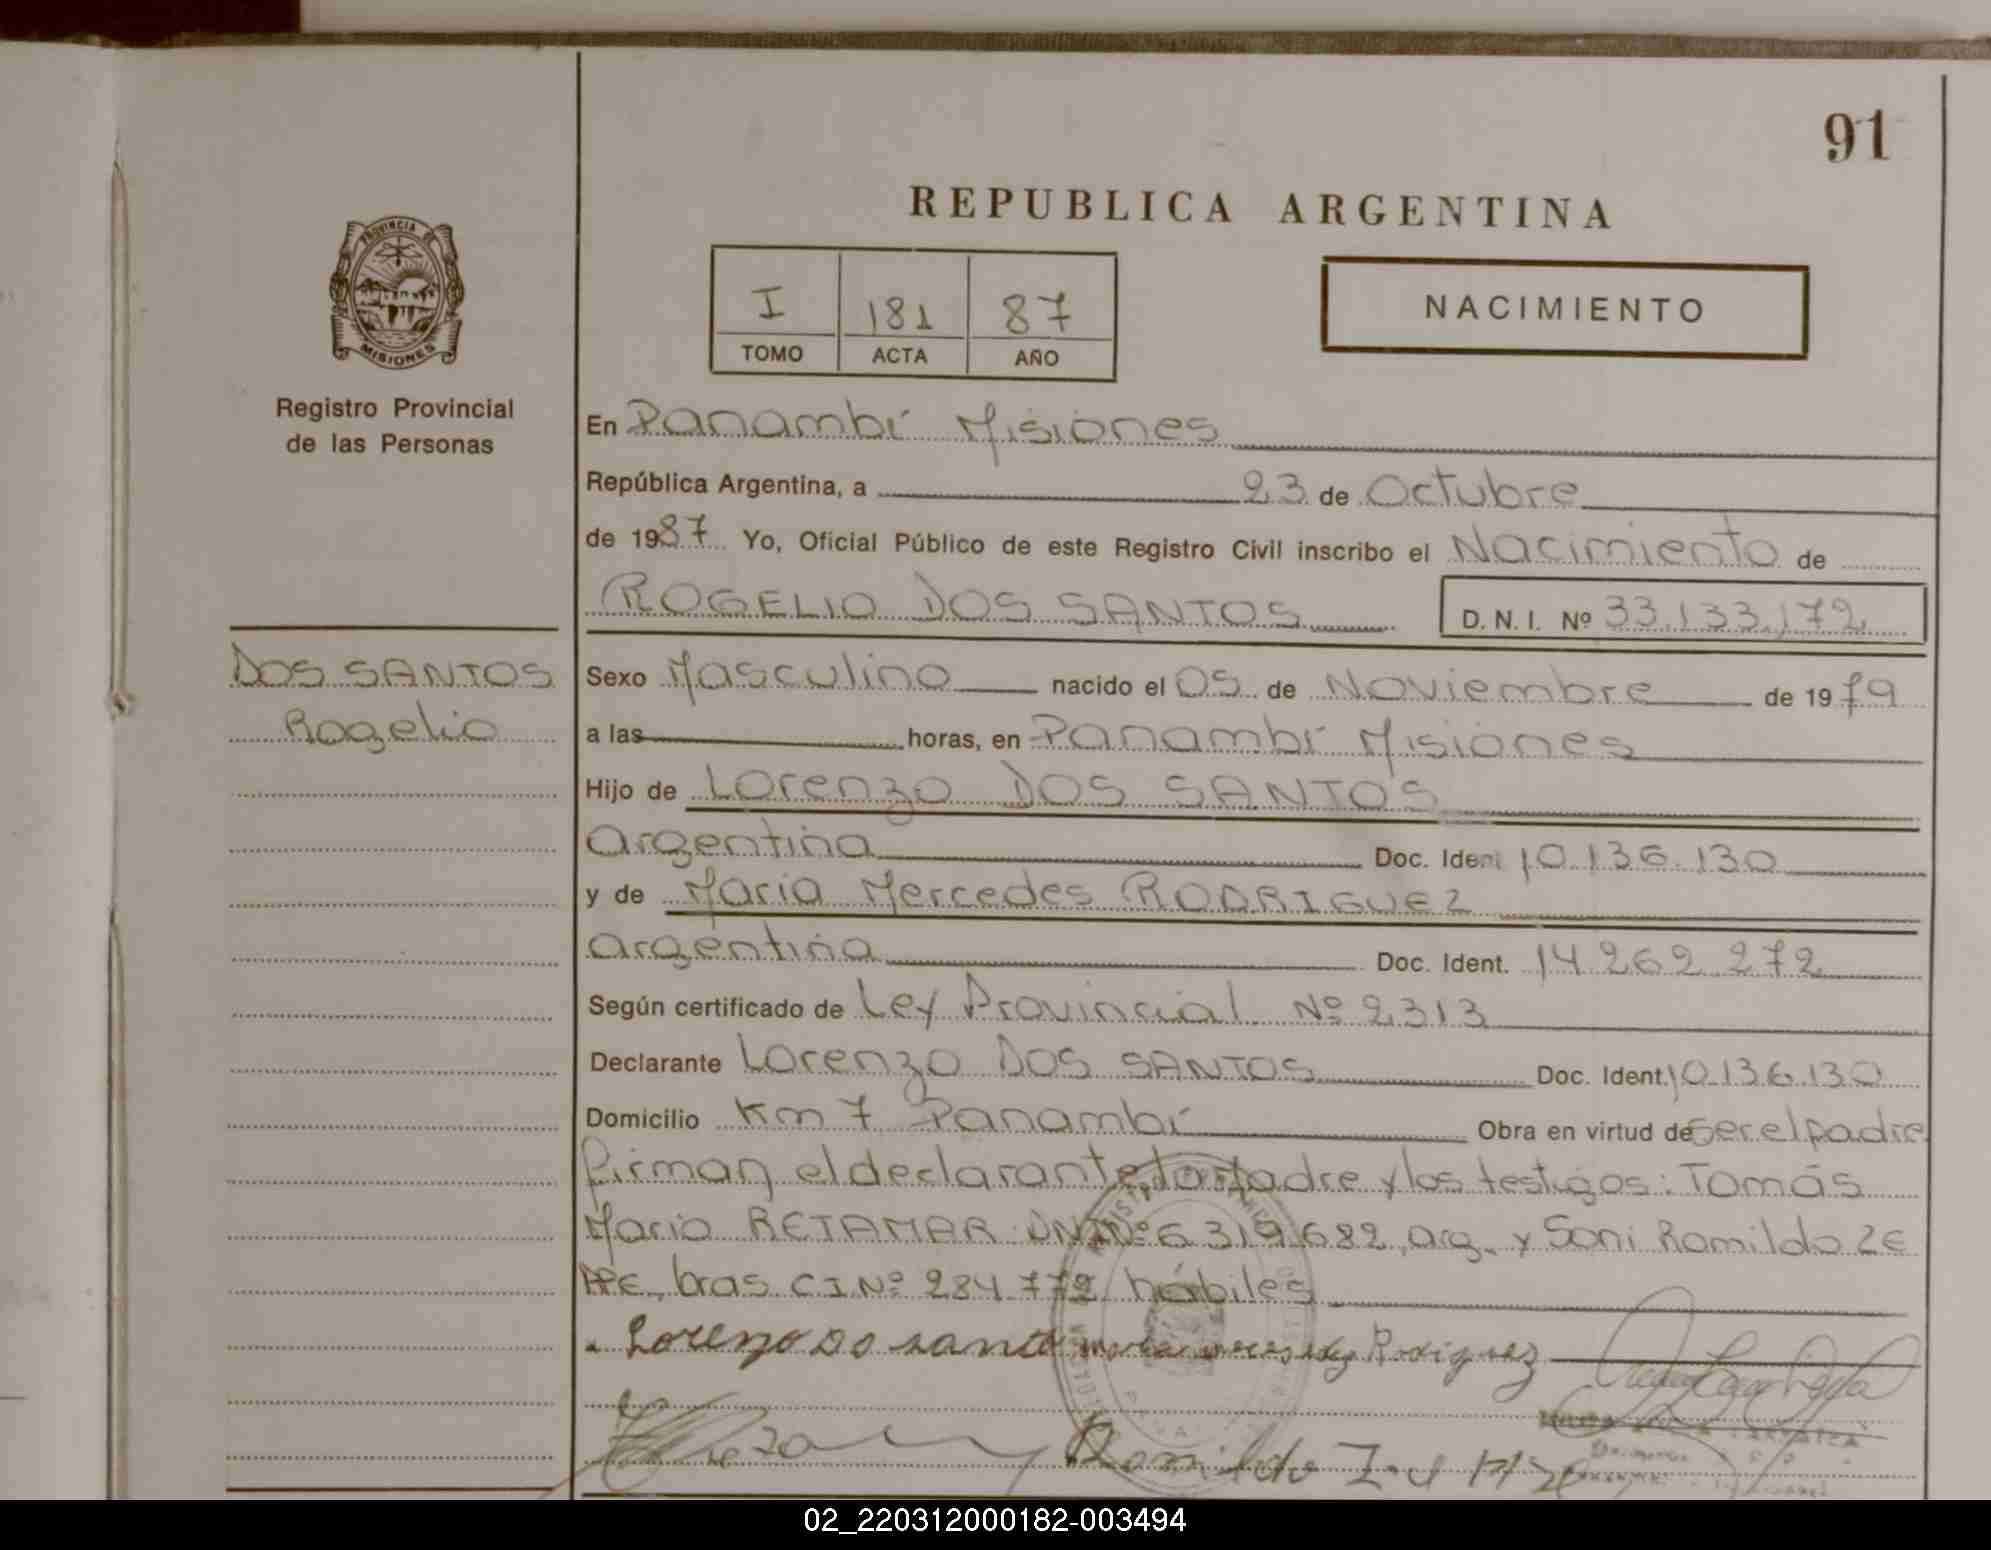 91
REPUBLICA ARGENTINA
PROVINCIA DE
MISIONES
Registro Provincial
de las Personas
I 181 87
TOMO ACTA AÑO
NACIMIENTO
En Panambí Misiones
República Argentina, a 23 de Octubre
de 1987 Yo, Oficial Público de este Registro Civil inscribo el Nacimiento de
ROGELIO DOS SANTOS D. N. I. Nº 33.133.172
DOS SANTOS
Rogelio
Sexo Masculino nacido el 05 de Noviembre de 1979
a las horas, en Panambí Misiones
Hijo de Lorenzo DOS SANTOS
Argentina Doc. Ident. 10.136.130
y de Maria Mercedes RODRIGUEZ
Argentina Doc. Ident. 14.262.272
Según certificado de Ley Provincial Nº 2313
Declarante Lorenzo DOS SANTOS Doc. Ident. 10.136.130
Domicilio Km 7 Panambí Obra en virtud de ser el padre
firman el declarante, la Madre y los testigos: Tomás
Mario RETAMAR DNI Nº 6.319.682, arg. y Soni Romildo ZE
PPE, bras. C I Nº 284.772 hábiles
Lorenzo Do santo Rodriguez
Romildo
02_220312000182-003494